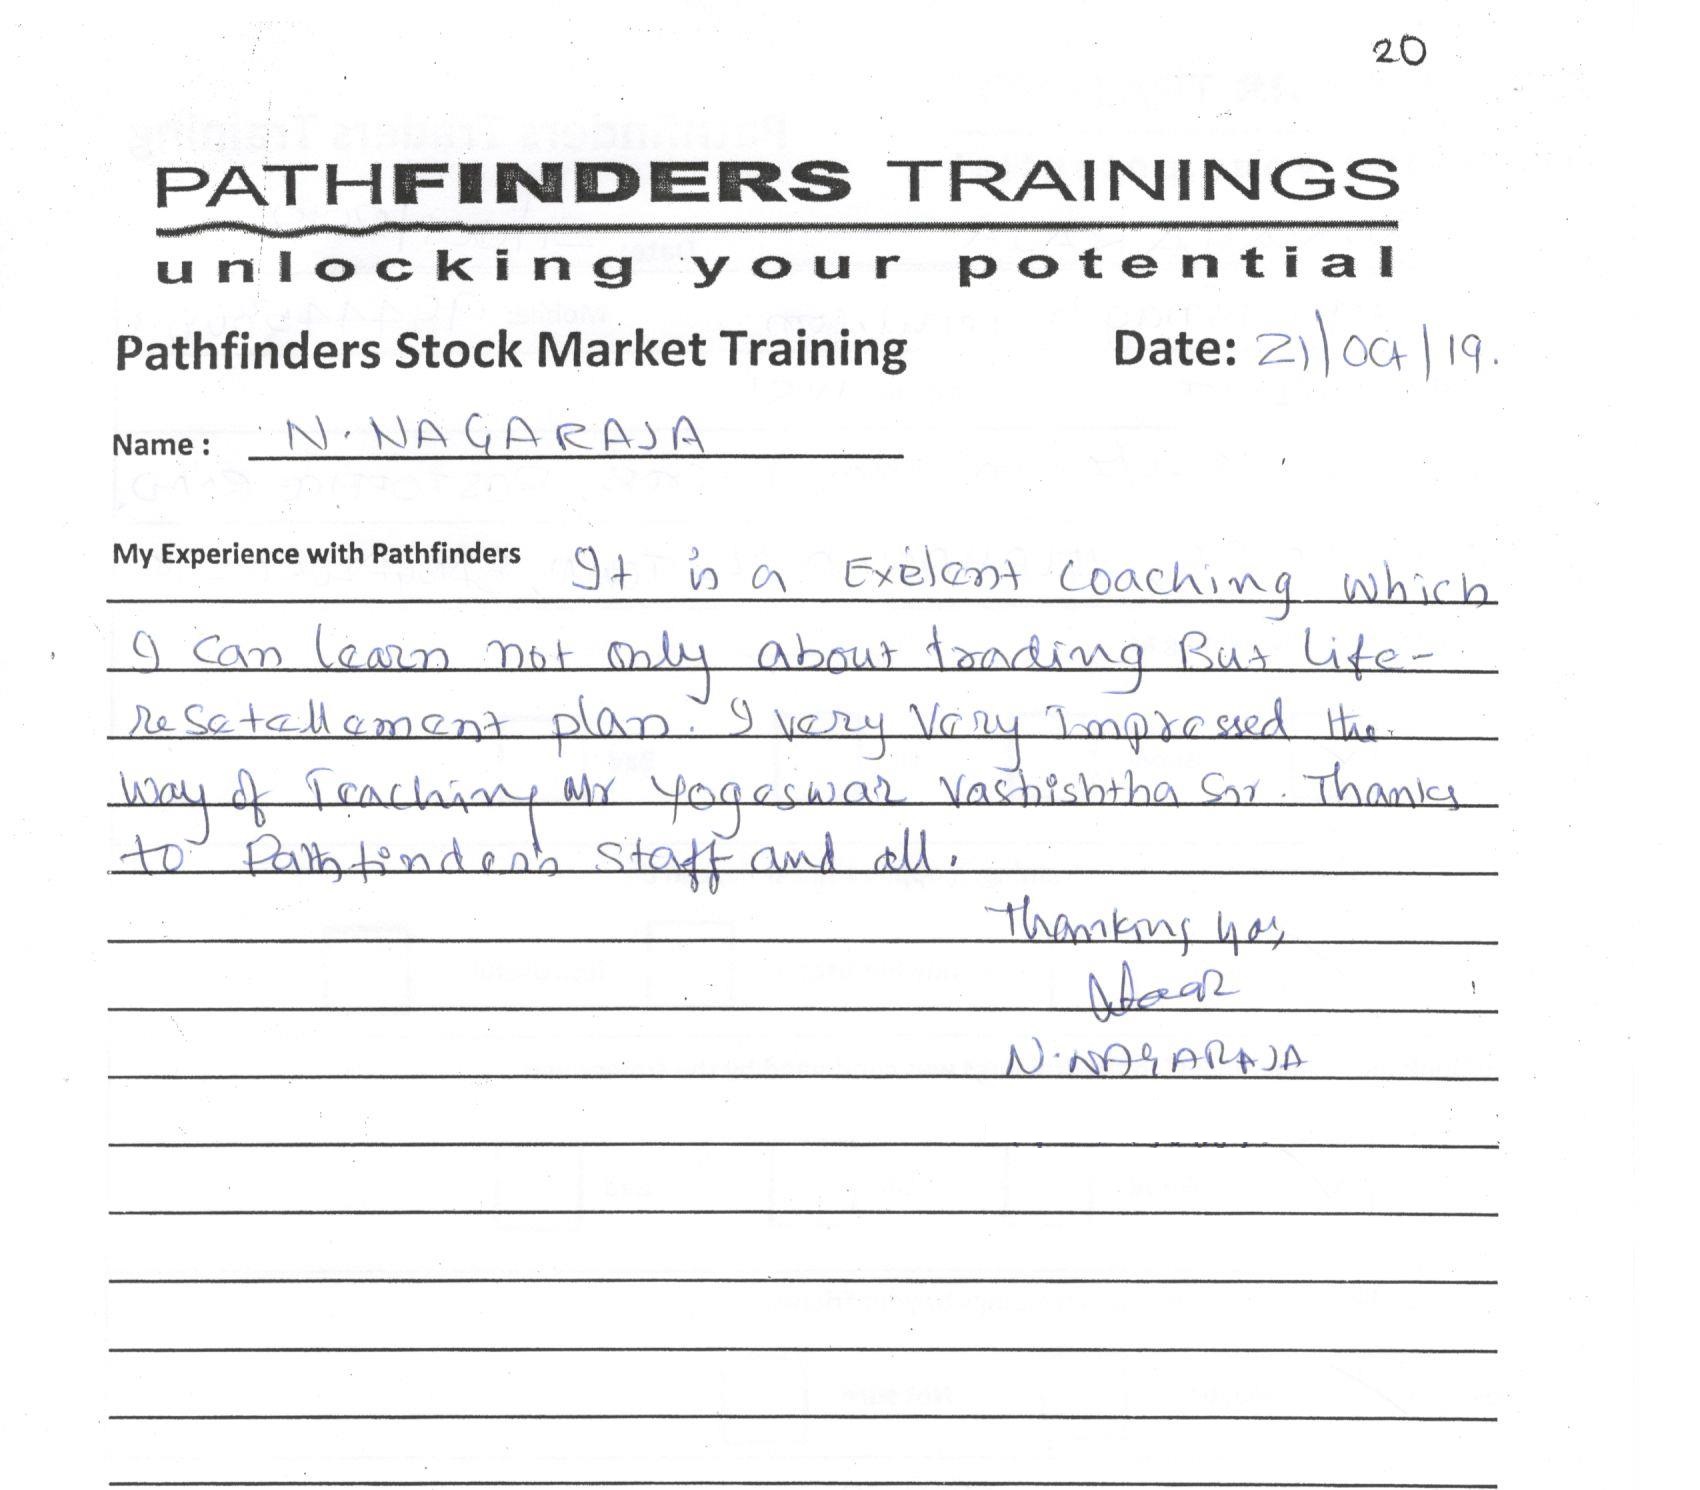 20
PATHFINDERS TRAININGS
unlocking your potential
Pathfinders Stock Market Training Date: 21/Oct/19.
Name : N. NAGARAJA
My Experience with Pathfinders It is a Exelent Coaching which
I can learn not only about trading But life-
resetellament plan. I very very Impressed the
way of Teaching Mr Yogeswar Vashishtha Sir. Thanks
to Pathfinders staff and all.
Thanking you,
N. NAGARAJA